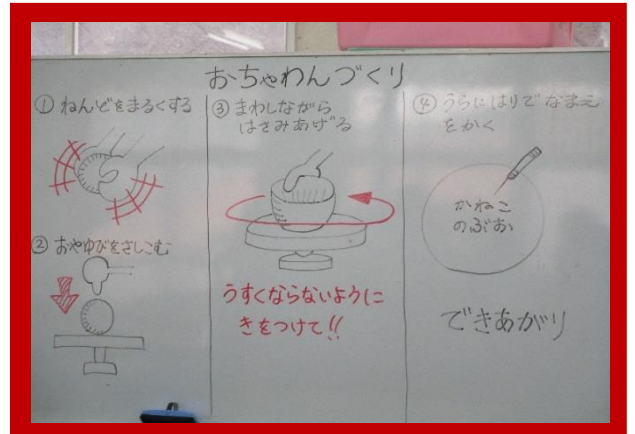 おちゃわんづくり
① ねんどをまるくする
② おやゆびをさしこむ
③ まわしながら
はさみあげる
うすくならないように
きをつけて!!
④ うらにはりでなまえ
をかく
かねこ
のぶお
できあがり